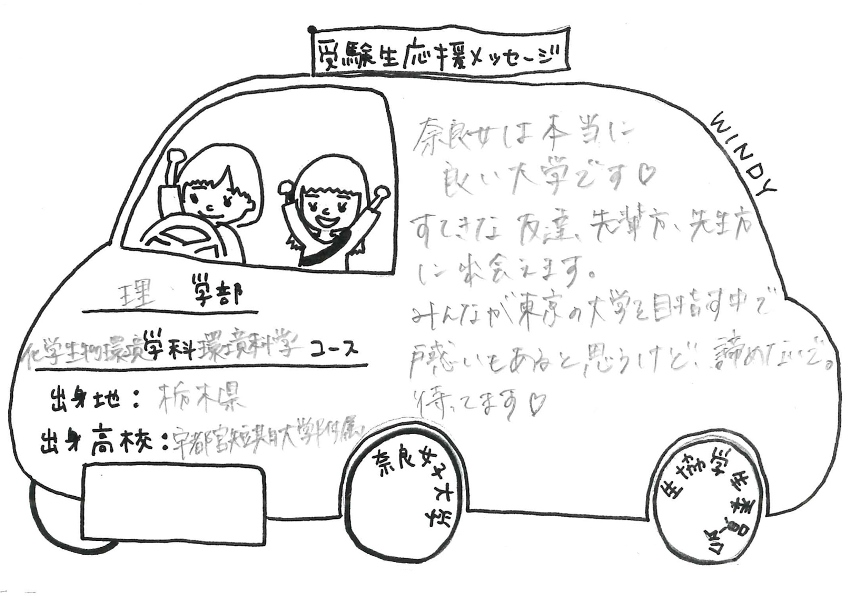 受験生応援メッセージ
WINDY
奈良女は本当に
良い大学です♡
すてきな友達、先輩方、先生方
に出会えます。
みんなが東京の大学を目指す中で
戸惑いもあると思うけど、諦めないで。
待ってます♡
理 学部
化学生物環境学科環境科学コース
出身地：栃木県
出身高校：宇都宮短期大学附属
奈良女子大学
生協学生委員会